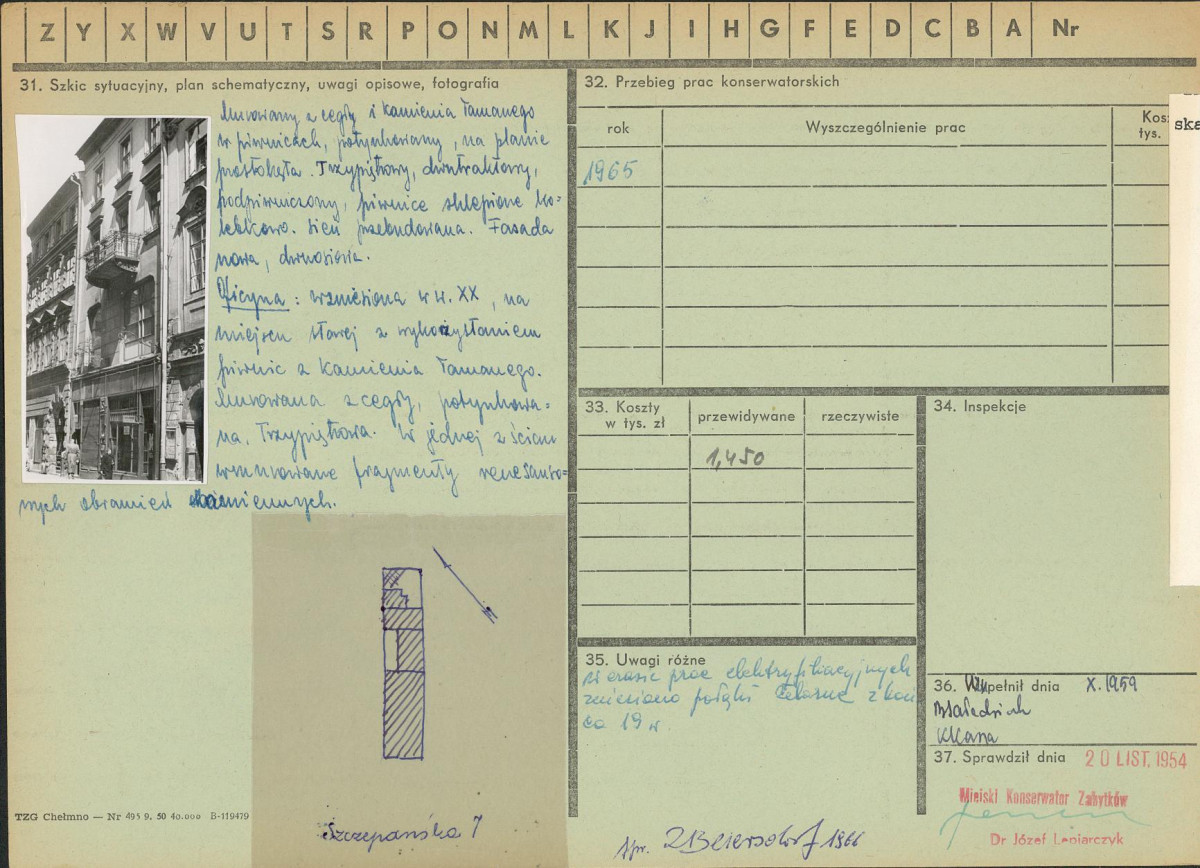 Z Y X W V U T S R P O N M L K J I H G F E D C B A Nr
31. Szkic sytuacyjny, plan schematyczny, uwagi opisowe, fotografia
Murowany z cegły i kamienia łamanego
w piwnicach, potynkowany, na planie
prostokąta. Trzypiętrowy, dwutraktowy,
podpiwniczony, piwnice sklepione ko=
lebkowo. Sień przebudowana. Fasada
nowa, dwuosiowa.
Oficyna: wzniesiona w w. XX, na
miejscu starej z wykorzystaniem
piwnic z kamienia łamanego.
Murowana z cegły, potynkowa=
na. Trzypiętrowa. W jednej z ścian
wmurowane fragmenty renesanso=
wych obramień kamiennych.
Szczepańska 7
TZG Chełmno — Nr 495 9. 50 40.000 B-119479
32. Przebieg prac konserwatorskich
rok
Wyszczególnienie prac
Kosz
tys.
ska
1965
33. Koszty
w tys. zł
przewidywane
rzeczywiste
1,450
34. Inspekcje
35. Uwagi różne
w czasie prac elektryfikacyjnych
zniesiono
z koń
ca 19 w.
36. Wypełnił dnia X.1959
37. Sprawdził dnia 20 LIST. 1954
Miejski Konserwator Zabytków
Dr Józef Lepiarczyk
Spr. Z Beiersdorf 1966